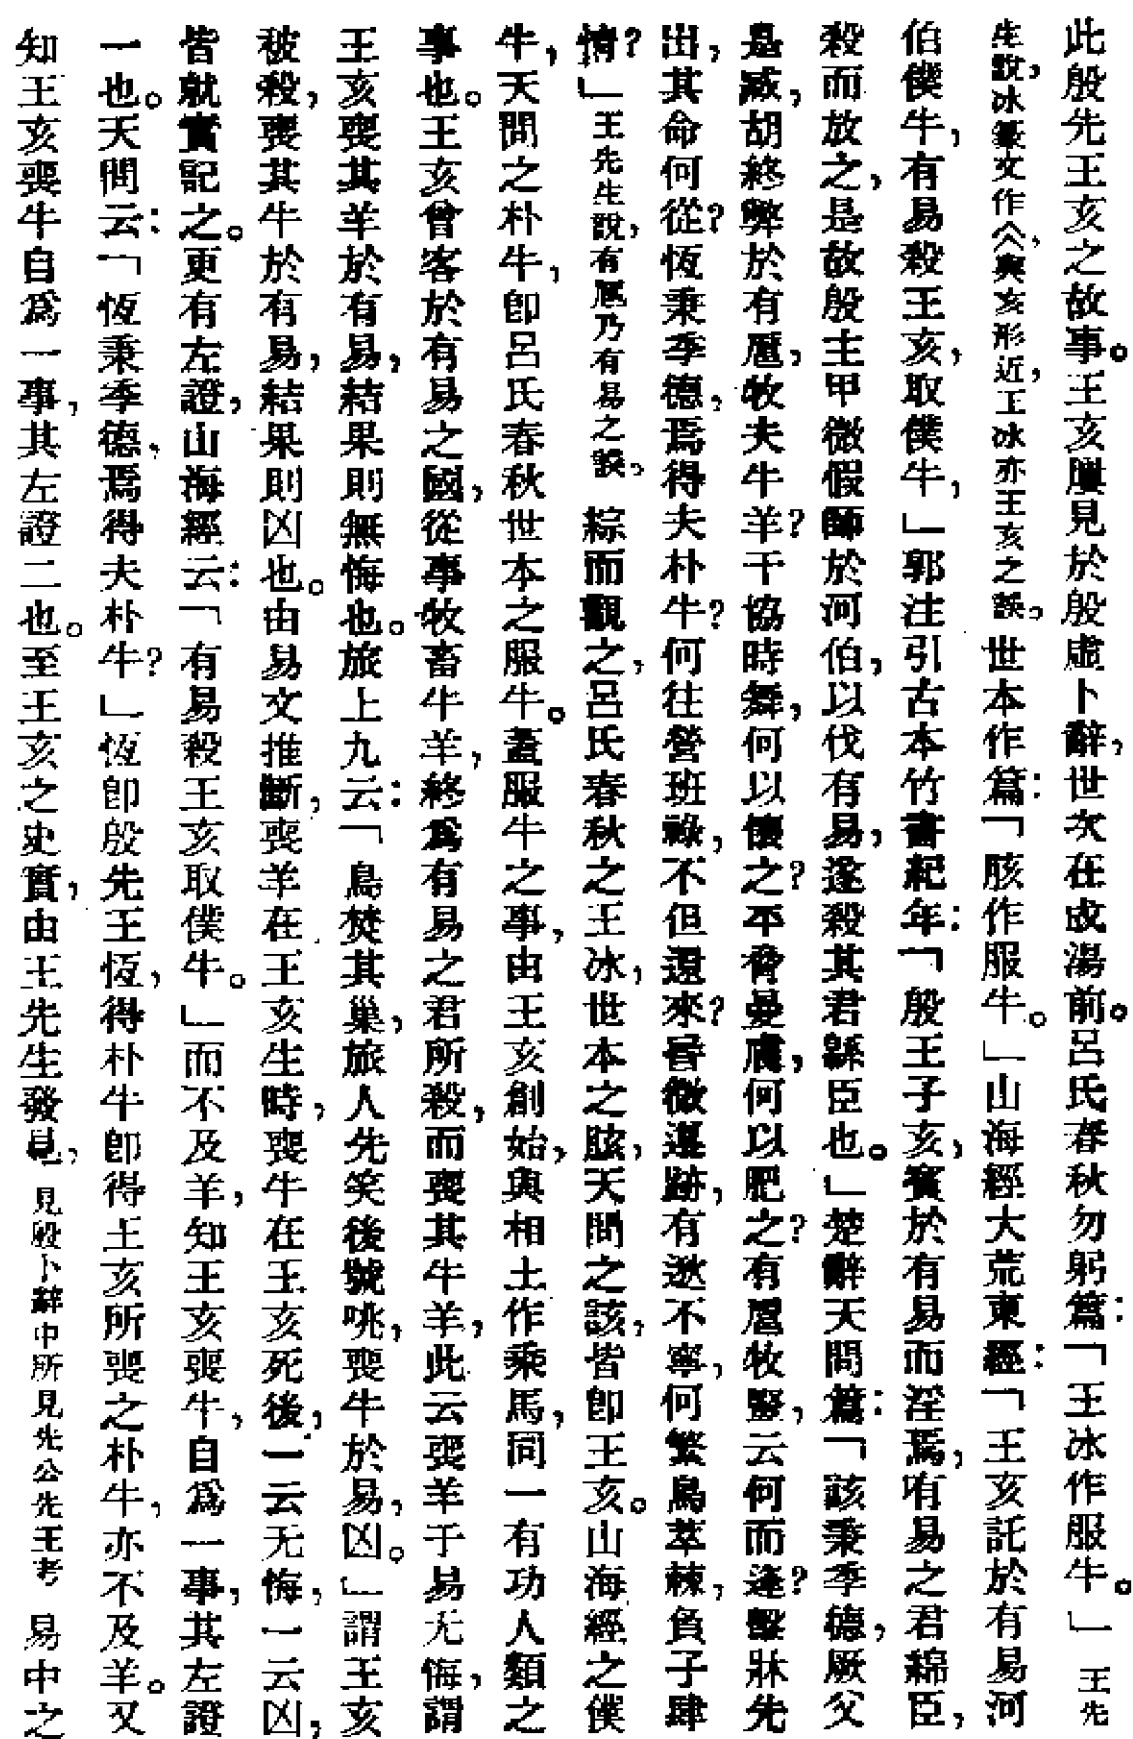 此殷先王亥之故事。王亥屢見於殷虛卜辭，世次在成湯前。呂氏春秋勿躬篇：「王冰作服牛。」王先
生說，冰篆文作仌，與亥形近，王冰亦王亥之誤。世本作篇：「胲作服牛。」山海經大荒東經：「王亥託於有易河
伯僕牛，有易殺王亥，取僕牛，」郭注引古本竹書紀年：「殷王子亥，賓於有易而淫焉，有易之君綿臣，
殺而放之，是故殷主甲微假師於河伯，以伐有易，遂殺其君緜臣也。」楚辭天問篇：「該秉季德，厥父
是臧，胡終弊於有扈，牧夫牛羊？干協時舞，何以懷之？平脅曼膚，何以肥之？有扈牧豎，云何而逢？擊牀先
出，其命何從？恆秉季德，焉得夫朴牛？何往營班祿，不但還來？昏微遵跡，有逖不寧，何繁鳥萃棘，負子肆
情？」王先生說，有扈乃有易之誤。綜而觀之，呂氏春秋之王冰，世本之胲，天問之該，皆卽王亥。山海經之僕
牛，天問之朴牛，卽呂氏春秋世本之服牛。蓋服牛之事，由王亥創始，與相土作乘馬，同一有功人類之
事也。王亥曾客於有易之國，從事牧畜牛羊，終爲有易之君所殺，而喪其牛羊，此云喪羊于易无悔，謂
王亥喪其羊於有易，結果則無悔也。旅上九云：「鳥焚其巢，旅人先笑後號咷，喪牛於易，凶。」謂王亥
被殺，喪其牛於有易，結果則凶也。由易文推斷，喪羊在王亥生時，喪牛在王亥死後，一云无悔，一云凶，
皆就實記之。更有左證，山海經云：「有易殺王亥取僕牛。」而不及羊，知王亥喪牛，自爲一事，其左證
一也。天問云：「恆秉季德，焉得夫朴牛？」恆卽殷先王恆，得朴牛卽得王亥所喪之朴牛，亦不及羊。又
知王亥喪牛自爲一事，其左證二也。至王亥之史實，由王先生發見，見殷卜辭中所見先公先王考易中之